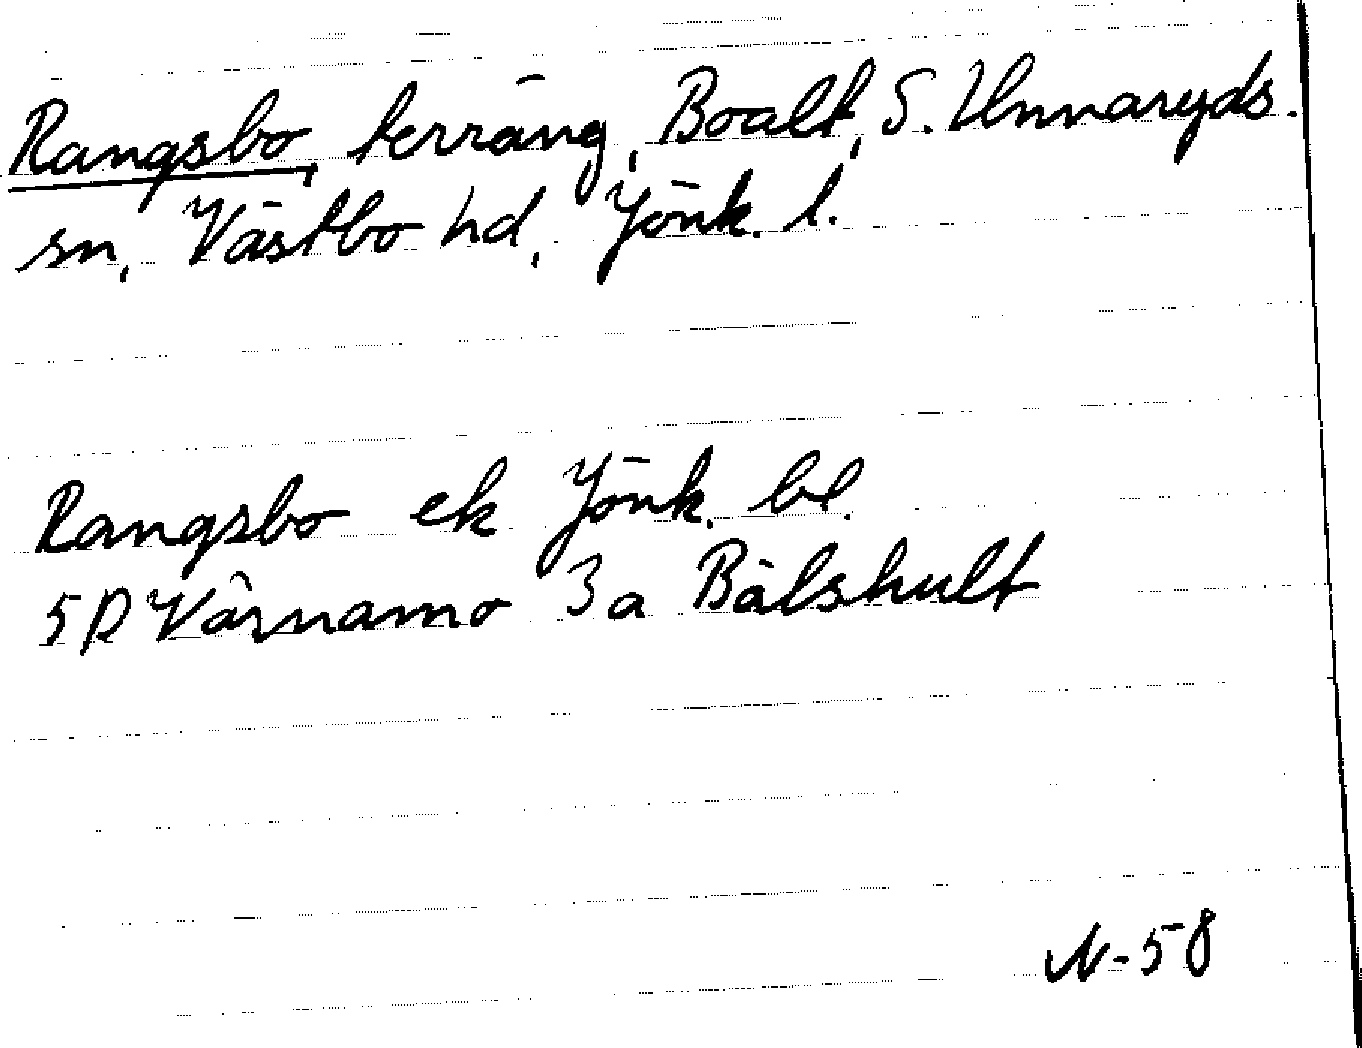 Rangsbo, terräng, Boalt, S. Unnaryds.
sn, Västbo hd, Jönk. l.
Rangsbo ek Jönk. bl.
5D Värnamo 3a Bälshult
N-58